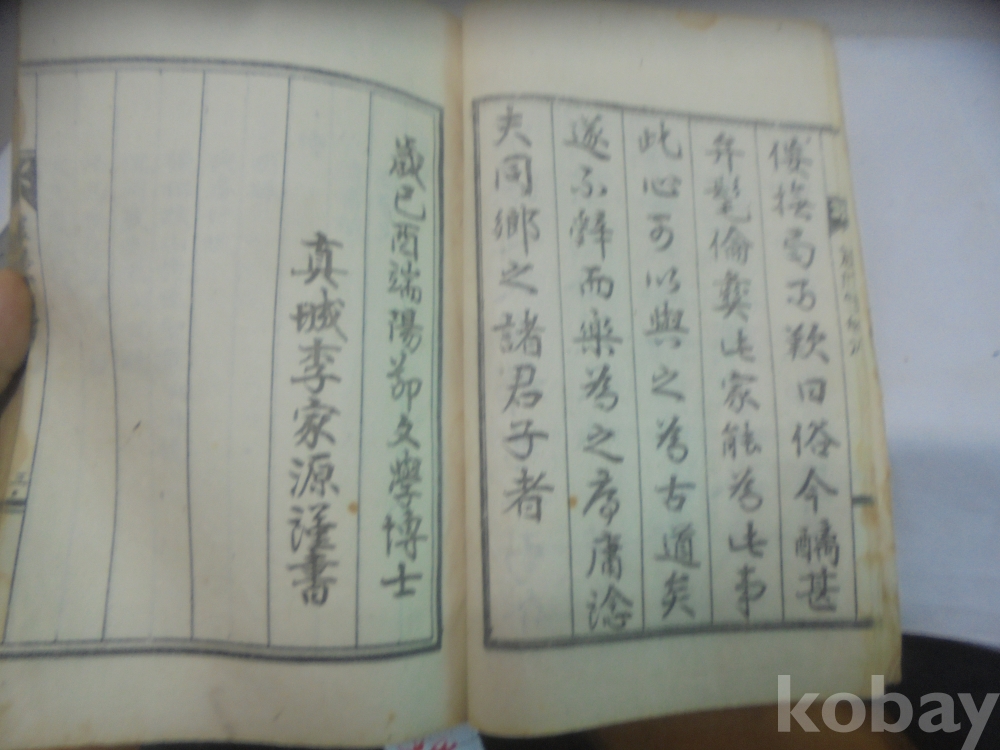 倭撫局而歎曰俗今醨甚
弁髦倫彛此家能為此事
此心可以與之為古道矣
遂不辭而樂為之序庸諗
夫同鄉之諸君子者
歲己酉端陽節文學博士
真城李家源謹書
kobay